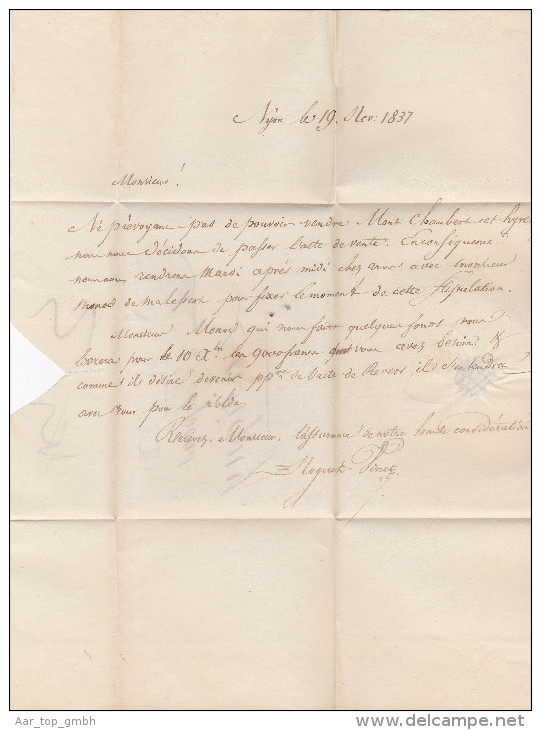 Nyon le 19. Nov: 1837
Monsieur!
Ne prévoyant pas de pouvoir vendre Mont Chaubert cet hyver
nous nous décidons de passer l'acte de vente. En conséquence
nous nous rendrons Mardi après midi chez vous avec monsieur
Monod de pour fixer le moment de cette Stipulation.
Monsieur Monod qui nous fait quelques fonds vous
livrera pour le 10 X.bre les 9000 francs dont vous avez besoin &
comme il désire devenir pp.re de l'acte de Revers il s'entendra
avec vous pour le solde
Recevez, Monsieur, l'assurance de notre haute considération
Roguet
Aar_top_gmbh
www.delcampe.net